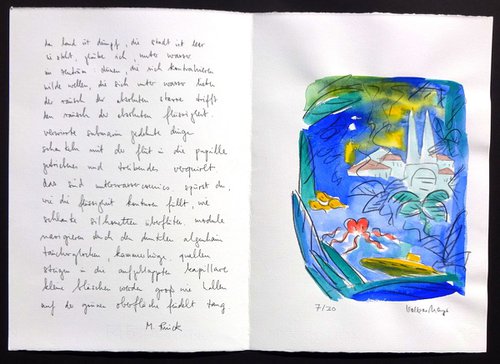 das land ist dumpf, die stadt ist leer
sie steht, glaube ich, unter wasser
im zentrum: sirenen, die sich kontrahieren
wilde wellen, die sich unter wasser lieben
der rausch der absoluten starre trifft
den rausch der absoluten flüssigkeit.
verwirrte submarin gedehnte dinge
schaukeln mit der flut in die pupille
gebrochenes und treibendes verquirlt.
das sind unterwassercomics spürst du,
wie die flüssigkeit konturen füllt, wie
schlanke silhouetten überfluten, module
navigieren durch den dunklen algenhain
taucherglocken, kammerkiege, quallen
steigen in die aufgeklappte kapillare
kleine bläschen werden groß wie hallen
auf der grünen oberfläche fiedelt tang
M. Rinck
7/20